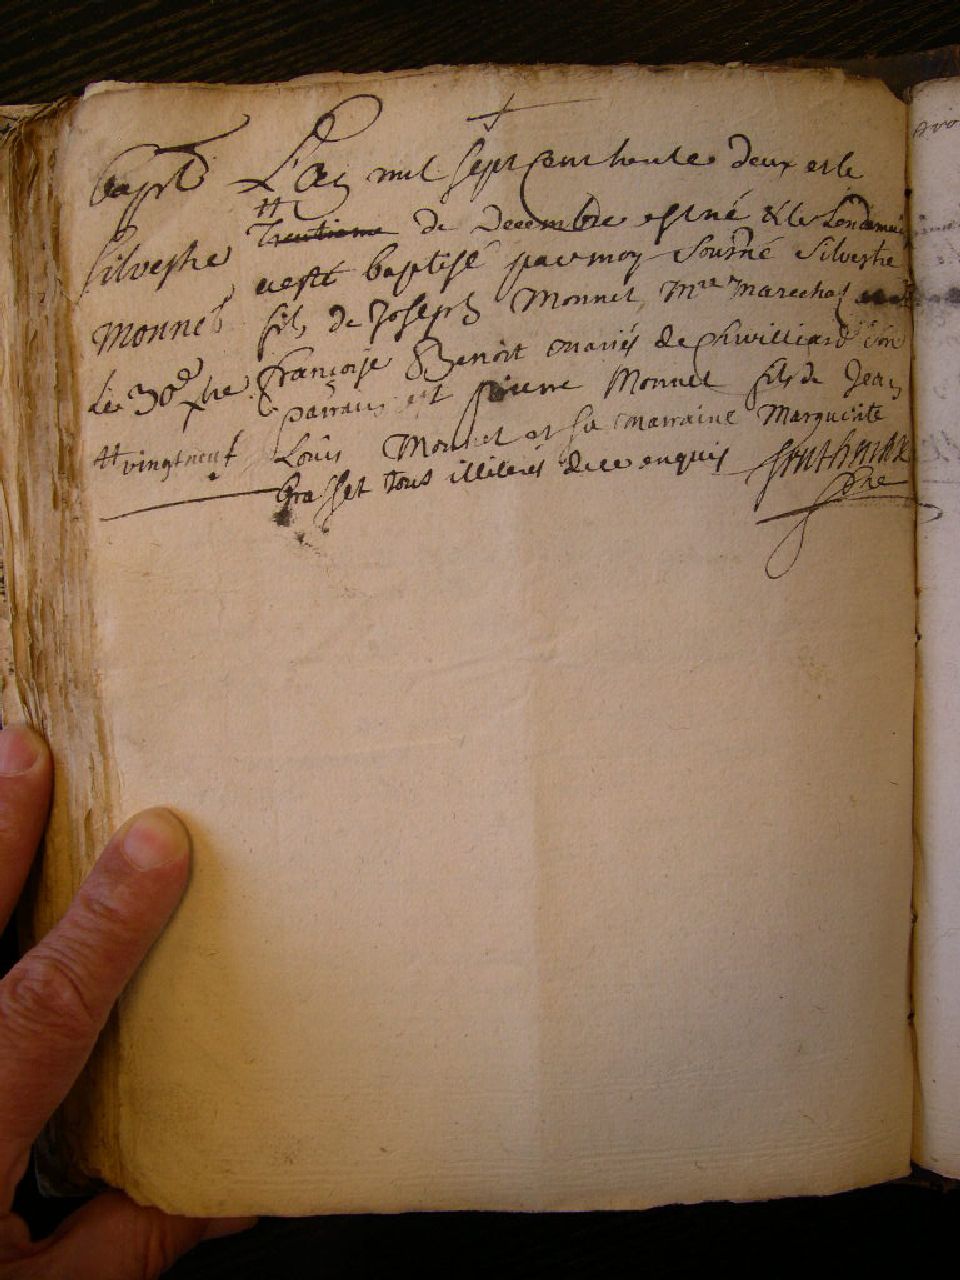 †
bapt L'an mil sept cent trente deux et le
# trentieme de Decembre est né & le Lendemain
Silvestre a esté baptisé par moy Sousné Silvestre
Monnet fils de Joseph Monnet, Mre Marechal
le 30e xbre françoise Benoit mariés de Son
parrain est pierre Monnet fils de Jean
# vingt neuf Louis Monnet et Sa marraine Marguerite
Grasset tous illiterés de ce enquis